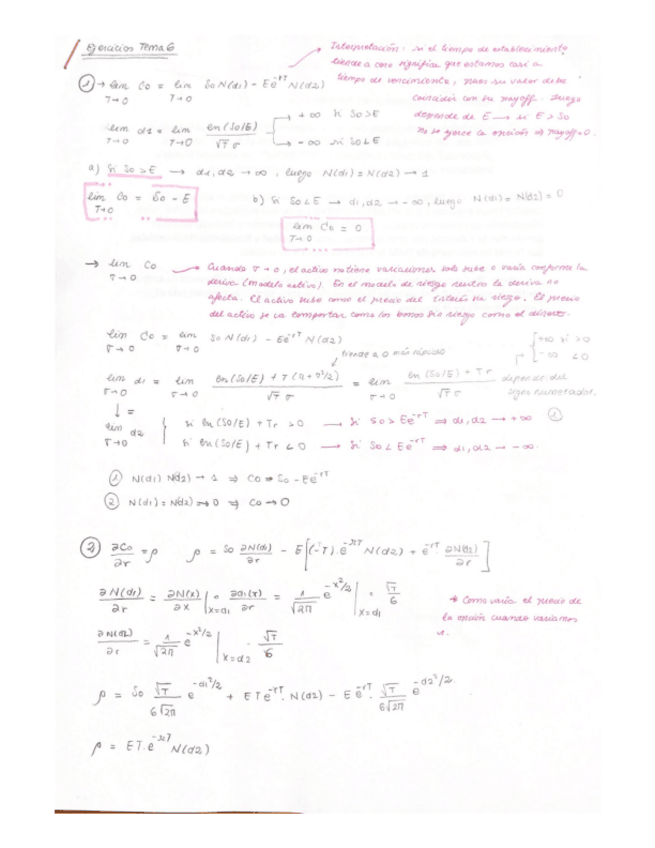 Ejercicios Tema 6
Interpretación: si el tiempo de establecimiento
tiende a cero significa que estamos casi a
tiempo de vencimiento, pues su valor debe
coincidir con su payoff. Luego
depende de E → si E > So
no se ejerce la opción ⇒ payoff=0.
① → lim Co = lim So N(d1) - Ee^-rT N(d2)
T→0 T→0
lim d1 = lim ln(So/E) / √T σ → +∞ si So>E
T→0 T→0 → -∞ si So<E
a) Si So>E → d1,d2 → ∞, luego N(d1) = N(d2) → 1
lim Co = So - E
T→0
b) Si So<E → d1,d2 → -∞, luego N(d1) = N(d2) = 0
lim Co = 0
T→0
→ lim Co
σ→0
Cuando σ→0, el activo no tiene variaciones solo sube o varía conforme la
deriva (modelo activo). En el modelo de riesgo neutro la deriva no
afecta. El activo sube como el precio del interés sin riesgo. El precio
del activo se va comportar como los bonos sin riesgo como el dinero.
lim Co = lim So N(d1) - Ee^-rT N(d2)
σ→0 σ→0
tiende a 0 más rápido
+∞ si >0
-∞ <0
lim d1 = lim ln(So/E) + T(r+σ²/2) / √T σ = lim ln(So/E) + Tr / √T σ depende del
σ→0 σ→0 σ→0 signo numerador.
↓ =
lim d2 si ln(So/E) + Tr >0 → Si So > Ee^-rT ⇒ d1,d2 → +∞ ①
σ→0 si ln(So/E) + Tr <0 → Si So < Ee^-rT ⇒ d1,d2 → -∞.
① N(d1) N(d2) → 1 ⇒ Co = So - Ee^-rT
② N(d1) = N(d2) → 0 ⇒ Co → 0
② ∂Co/∂r = ρ ρ = So ∂N(d1)/∂r - E[(-T).e^-rT N(d2) + e^-rT. ∂N(d2)/∂r]
∂N(d1)/∂r = ∂N(x)/∂x |x=d1 · ∂d1(x)/∂r = 1/√2π e^-x²/2 |x=d1 · √T/σ
* Como varía el precio de
la opción cuando variamos
r.
∂N(d2)/∂r = 1/√2π e^-x²/2 |x=d2 · √T/σ
ρ = So √T/σ√2π e^-d1²/2 + ETe^-rT. N(d2) - Ee^-rT. √T/σ√2π e^-d2²/2
ρ = ET.e^-rT N(d2)